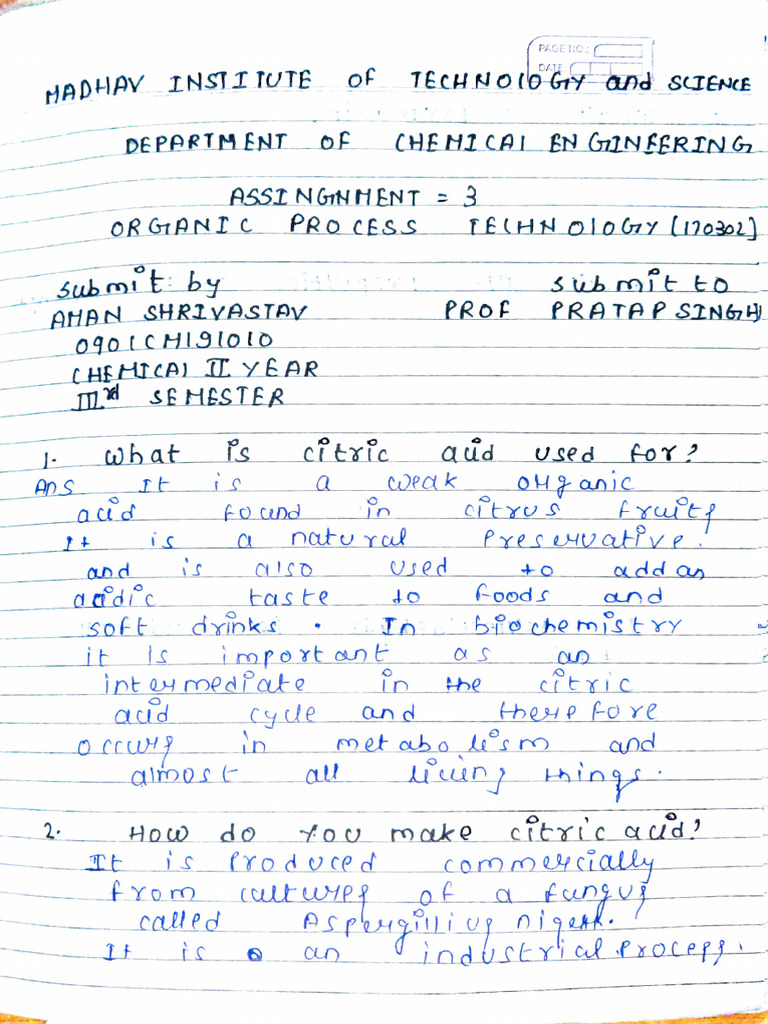 PAGE NO.:
DATE
MADHAV INSTITUTE OF TECHNOLOGY and SCIENCE
DEPARTMENT OF CHEMICAL ENGINEERING
ASSINGNMENT = 3
ORGANIC PROCESS TECHNOLOGY [170302]
submit by submit to
AMAN SHRIVASTAV PROF PRATAP SINGH
0901CM191010
CHEMICAL II YEAR
IIIrd SEMESTER
1. What is citric acid used for?
Ans It is a weak organic
acid found in citrus fruits
It is a natural Preservative.
and is also used to add an
acidic taste to foods and
soft drinks. In biochemistry
it is important as an
intermediate in the citric
acid cycle and therefore
occurs in metabolism and
almost all living things.
2. How do you make citric acid?
It is Produced commercially
from cultures of a fungus
called Aspergillius niger.
It is an industrial Process.